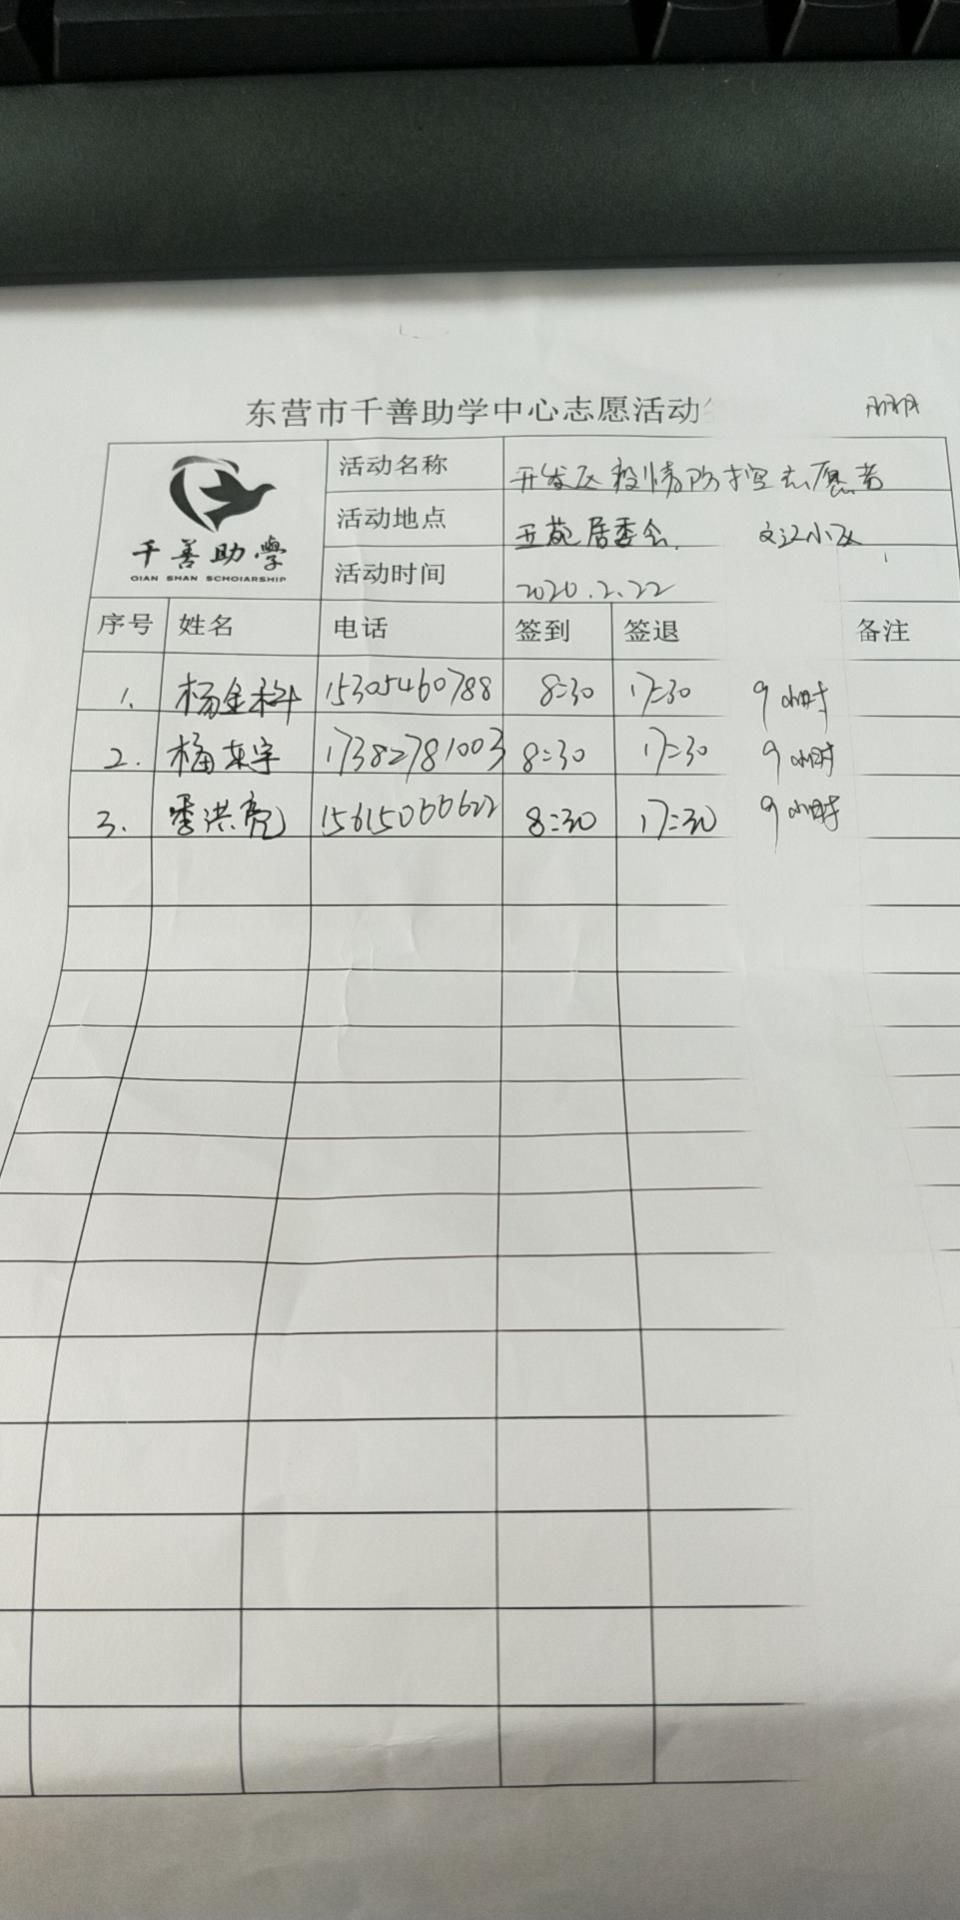 东营市千善助学中心志愿活动
千善助學
QIAN SHAN SCHOIARSHIP
活动名称 开发区疫情防控志愿者
活动地点 居委会 文汇小区
活动时间 2020.2.22
序号 姓名 电话 签到 签退 备注
1. 杨金科 15305460788 8:30 17:30 9小时
2. 杨东宇 17382781003 8:30 17:30 9小时
3. 季洪亮 15615066622 8:30 17:30 9小时